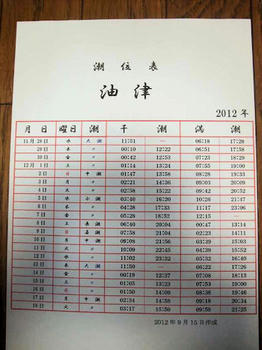 潮位表
油津
2012年
月 日 曜日 潮 干 潮 満 潮
11月 28日 水 大潮 11:51 — 06:18 17:28
29日 木 〃 00:10 12:22 06:51 17:58
30日 金 〃 00:42 12:52 07:23 18:29
12月 1日 土 〃 01:14 13:24
2日 日 中潮 01:47 13:58 08:28 19:33
3日 月 〃 02:21 14:36 09:03 20:09
4日 火 〃 02:58 15:22
5日 水 小潮 03:40 16:20 10:26 21:47
6日 木 〃 04:28 17:33 11:17 23:06
7日 金 〃 05:28 18:52 12:15 —
8日 土
9日 日 07:58 21:04 02:23 14:11
10日 月 中潮
11日 火 〃 10:09 22:45 04:39 15:52
12日 水 大潮 11:02 23:32
13日 木 大潮 11:50 — 06:22 17:26
14日 金 〃 00:19 12:37 07:08 18:13
15日 土 〃
16日 日
17日 月 中潮 02:34 14:58 09:18 20:34
18日 火 〃 03:17
2012年9月15日作成